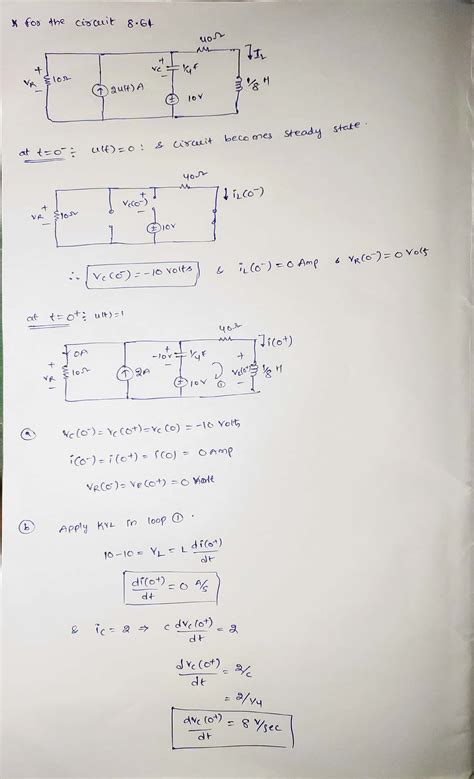 * for the circuit 8.64
40Ω
↓IL
+
VR
-
10Ω
2u(t) A
+
Vc
-
1/4 F
10V
1/8 H
at t=0⁻: u(t)=0: & circuit becomes steady state.
40Ω
↓ iL(0⁻)
+
VR
-
10Ω
+
Vc(0⁻)
-
10V
∴ Vc(0⁻) = -10 volts & iL(0⁻) = 0 Amp & VR(0⁻) = 0 volts
at t=0⁺: u(t)=1
40Ω
↓i(0⁺)
0A
+
VR
-
10Ω
2A
-10V
+
-
1/4 F
10V
①
+
VL(0⁺)
-
1/8 H
ⓐ Vc(0⁻) = Vc(0⁺) = Vc(0) = -10 volts
i(0⁻) = i(0⁺) = i(0) = 0 Amp
VR(0⁻) = VR(0⁺) = 0 volt
ⓑ Apply KVL in loop ①.
10-10 = VL = L di(0⁺)/dt
di(0⁺)/dt = 0 A/s
& ic = 2 ⇒ c dvc(0⁺)/dt = 2
dvc(0⁺)/dt = 2/c
= 2/1/4
dvc(0⁺)/dt = 8 V/sec